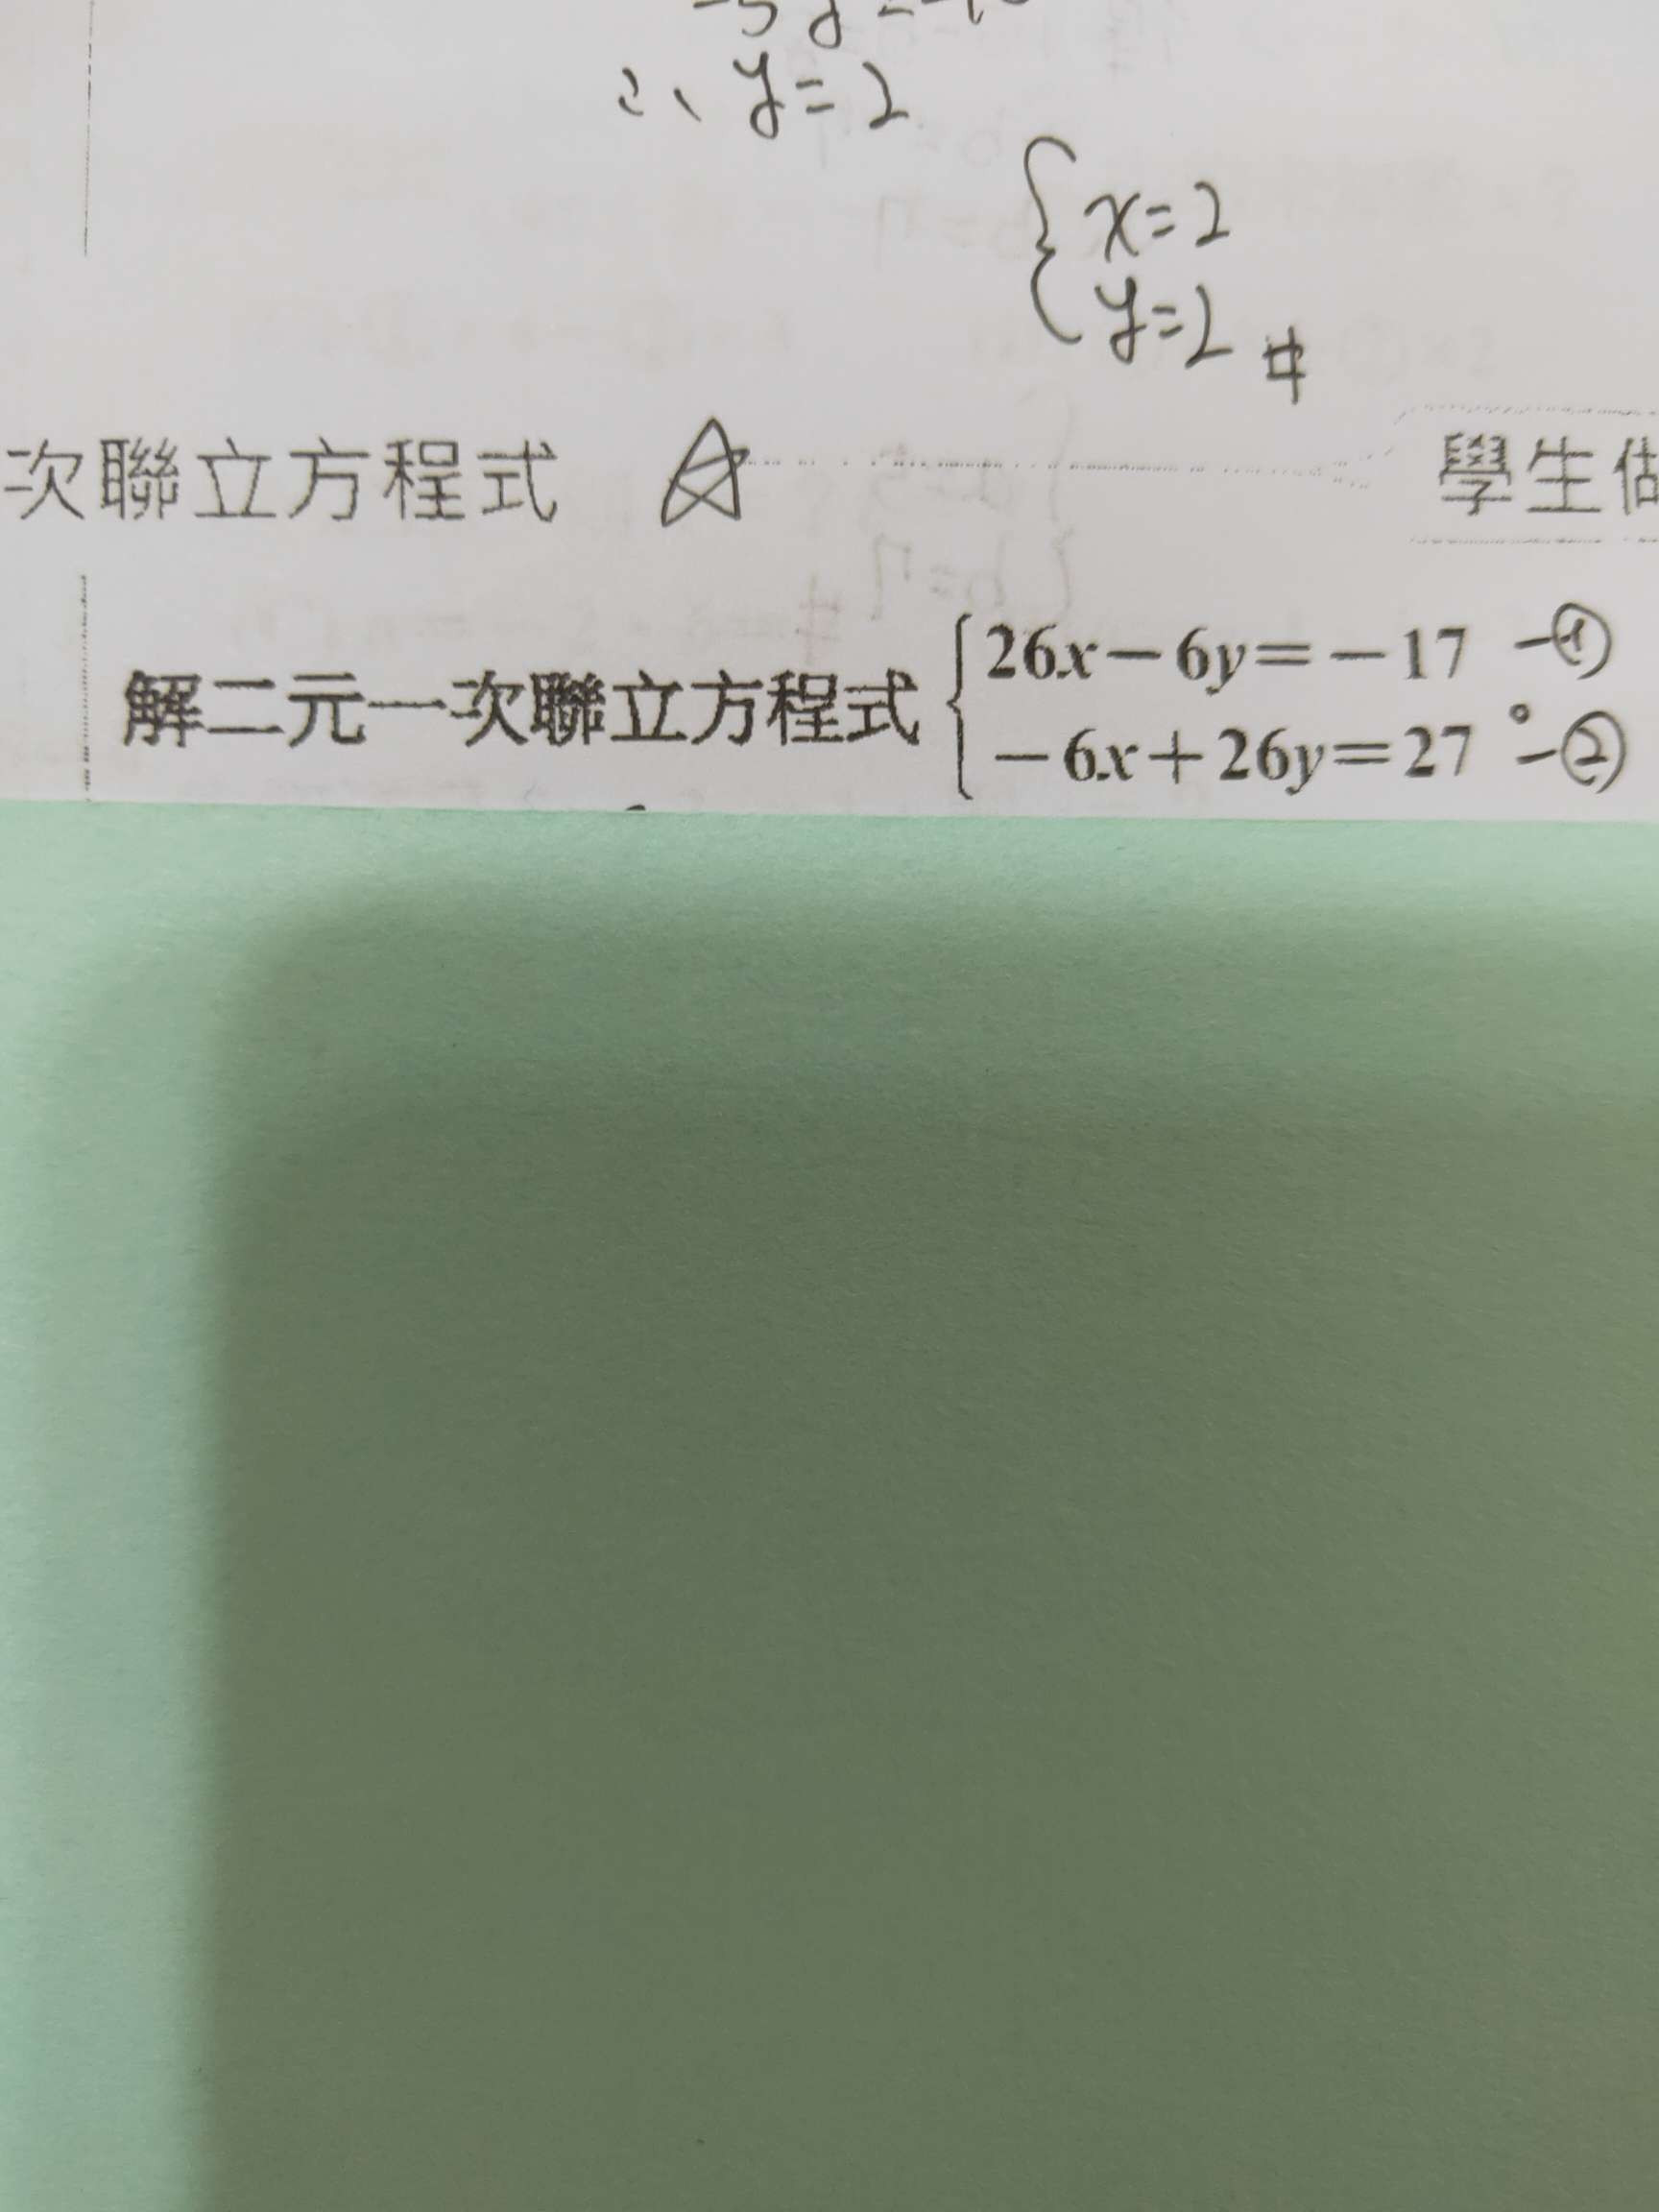 ∴ y=2
{ x=2
y=2 #
次聯立方程式 ☆ 學生
解二元一次聯立方程式 { 26x－6y＝－17 －①
－6x＋26y＝27 。 －②